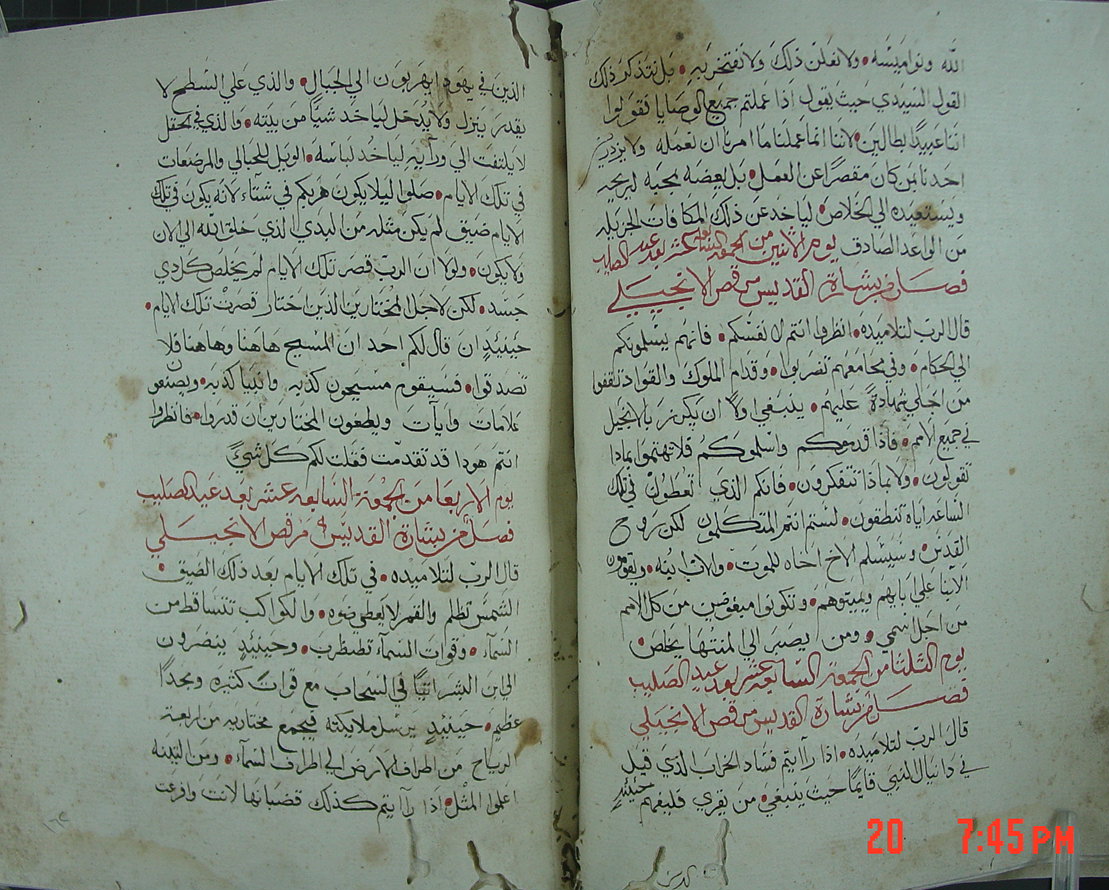 الله ونواميسه • ولا نفلن ذلك ولا نفتخر به • بل نتذكر ذلك
القول السيدي حيث يقول اذا عملتم جميع الوصايا فقولوا
اننا عبيدًا بطالين • لاننا انما عملنا ما امرنا ان نعمله ولا يزدري
احدنا بمن كان مقصرًا عن العمل • بل يعضه بمحبه لربحه
ويستعيده الي الخلاص • لياخد عن ذلك المكافات الجزيله
من الواعد الصادق يوم الاثنين من الجمعه السابعه عشر بعد عيد الصليب
فصل من بشارة القديس مرقص الانجيلي
قال الرب لتلاميذه • انظروا انتم لانفسكم • فانهم يسلمونكم
الي الحكام • وفي مجامعهم تضربوا • وقدام الملوك والقواد توقفوا
من اجلي شهادةً عليهم • ينبغي ولًا ان يكرز بالانجيل
في جميع الامم • فاذا قدموكم واسلموكم فلا تهتموا بمادا
تقولون • ولا بماذا تتفكرون • فانكم الذي تعطون في تلك
الساعه اياه تنطقون • لستم انتم المتكلمون لكن روح
القدس • وسيسلم الاخ اخاه للموت • والاب ابنه • ويقومون
الابنا علي ابايهم ويميتوهم • وتكونوا مبغوضين من كل الامم
من اجل اسمي • ومن يصبر الي المنتها يخلص •
يوم الثلثا من الجمعة السابعه عشر بعد عيد الصليب
فصل من بشارة القديس مرقص الانجيلي
قال الرب لتلاميذه • اذا رأيتم فساد الخراب الذي قيل
في دانيال النبي قايمًا حيث ينبغي • من يقري فليفهم حينيئدٍ
الذين في يهودا يهربون الي الجبال • والذي علي السطح لا
يقدر ينزل ولا يدخل لياخد شيًا من بيته • والذي في الحقل
لا يلتفت الي ورآيه لياخد لباسه • الويل للحبالي والمرضعات
في تلك الايام • صلوا ليلا يكون هربكم في شتآء لانه يكون في تلك
الايام ضيق لم يكن مثله من البدي الذي خلق الله الي الان
ولا يكون • ولولا ان الرب قصر تلك الايام لم يخلص كل دي
جسد • لكن لاجل المختارين الذين اختار قصرت تلك الايام •
حينيئدٍ ان قال لكم احد ان المسيح هاهنا وهاهنا فلا
تصدقوا • فسيقوم مسيحون كدبه وانبيا كدبه • ويصنعو
علامات وايآت ويطغون المختارين ان قدروا • فانظروا
انتم هودا قد تقدمت فقلت لكم كل شيً
يوم الاربعا من الجمعة السابعه عشر بعد عيد الصليب
فصل من بشارة القديس مرقص الانجيلي
قال الرب لتلاميذه • في تلك الايام بعد ذلك الضيق •
الشمس تظلم والقمر لا يعطي ضوه • والكواكب تتساقط من
السمآء • وقوات السمآء تضطرب • وحينيئدٍ ينصرون
الي ابن البشر اتيًا في السحاب مع قوات كثيره ومجدًا
عظيم • حينيئدٍ يرسل ملايكته فيجمع مختاريه من اربعة
الرياح من اطراف الارض الي اطراف السمآء • ومن التينه
اعلموا المثل • اذا رأيتم كذلك قضبانها لانت وافرعت